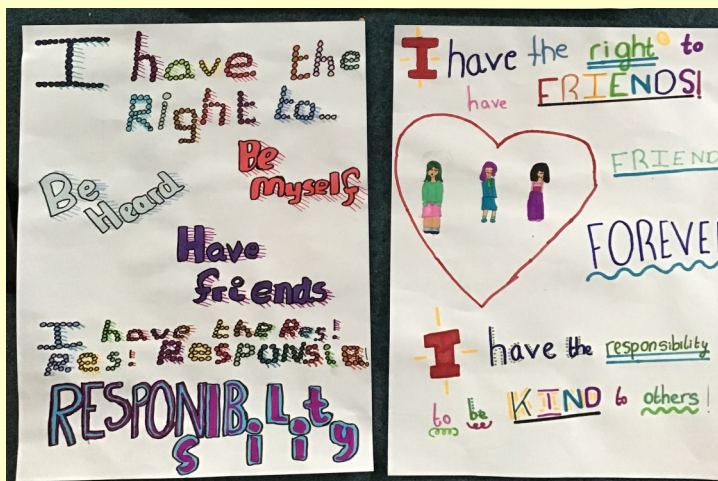 I have the
Right to...
Be
Heard
Be
myself
Have
friends
I have the Res!
Res! RESPONSIB
RESPONSIBILity
I have the right to
have FRIENDS!
FRIEND
FOREVE
I have the responsibility
to be KIND to others!